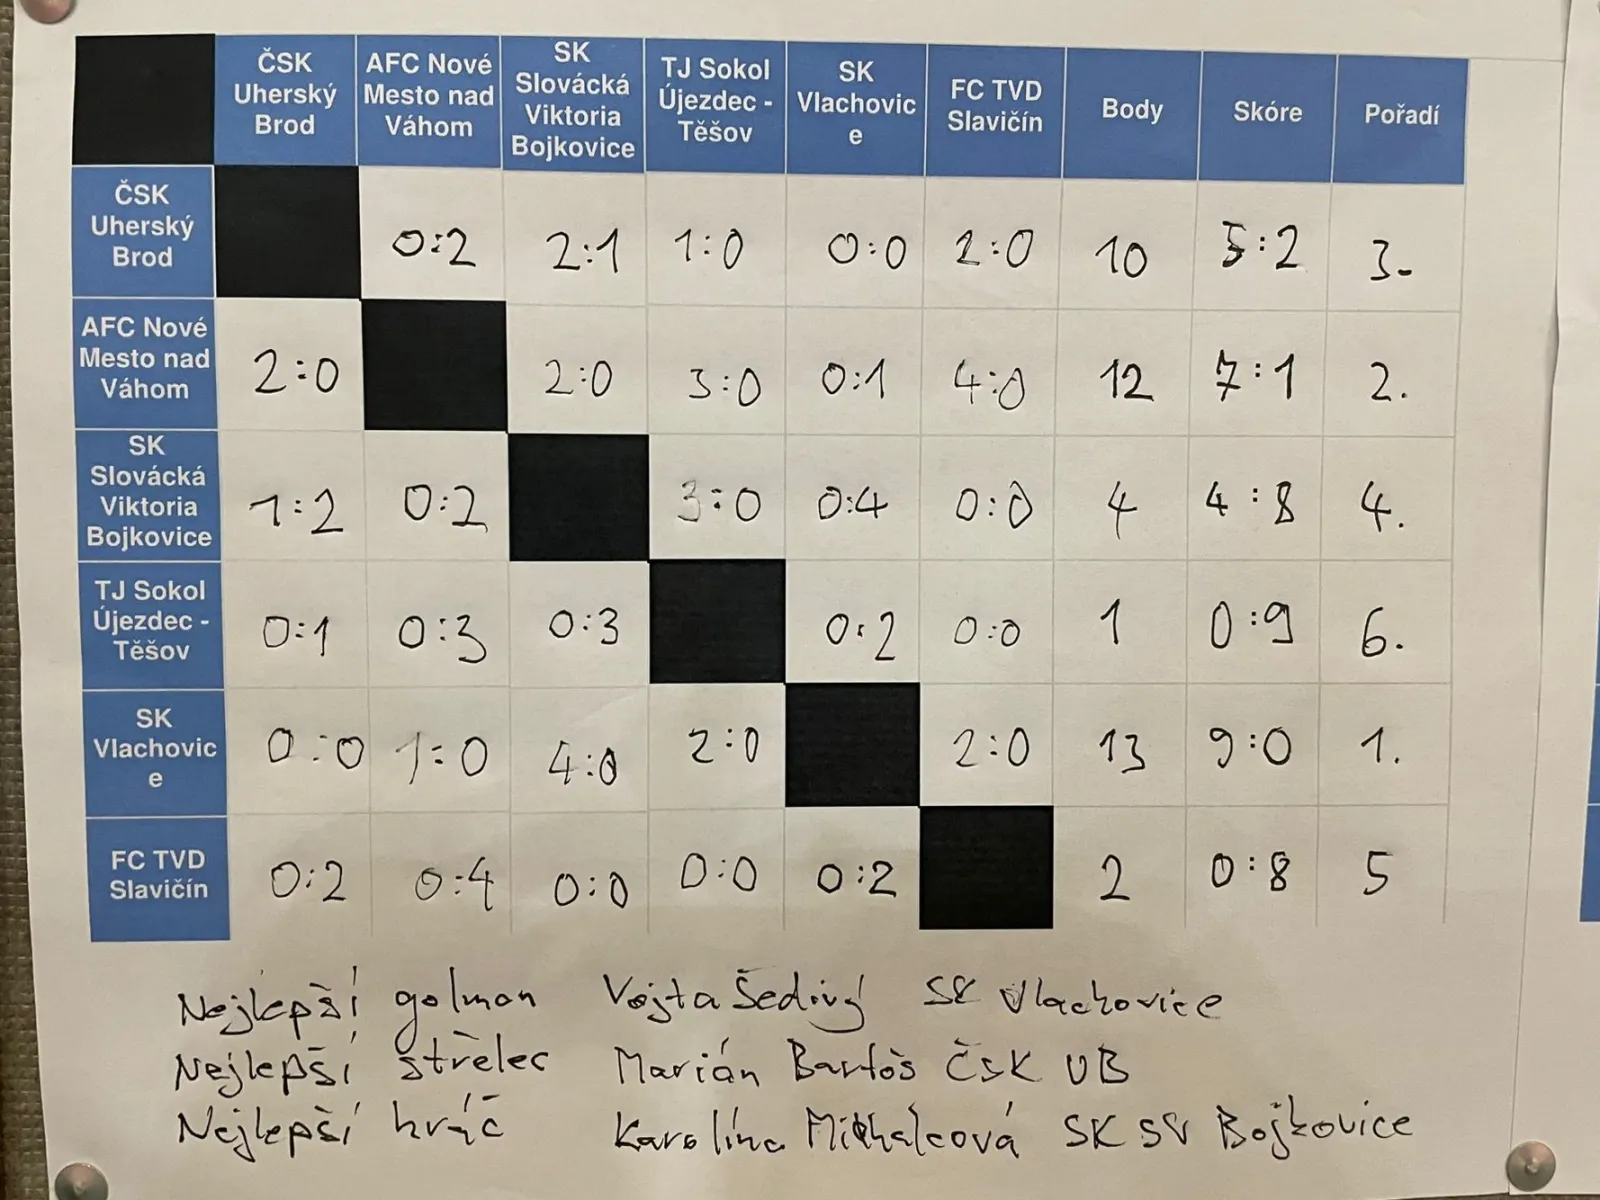 ČSK Uherský Brod AFC Nové Mesto nad Váhom SK Slovácká Viktoria Bojkovice TJ Sokol Újezdec - Těšov SK Vlachovice FC TVD Slavičín Body Skóre Pořadí
ČSK Uherský Brod 0:2 2:1 1:0 0:0 2:0 10 5:2 3.
AFC Nové Mesto nad Váhom 2:0 2:0 3:0 0:1 4:0 12 7:1 2.
SK Slovácká Viktoria Bojkovice 1:2 0:2 3:0 0:4 0:0 4 4:8 4.
TJ Sokol Újezdec - Těšov 0:1 0:3 0:3 0:2 0:0 1 0:9 6.
SK Vlachovice 0:0 1:0 4:0 2:0 2:0 13 9:0 1.
FC TVD Slavičín 0:2 0:4 0:0 0:0 0:2 2 0:8 5
Nejlepší golman Vojta Šedivý SK Vlachovice
Nejlepší střelec Marián Bartoš ČSK UB
Nejlepší hráč Karolína Michalcová SK SV Bojkovice